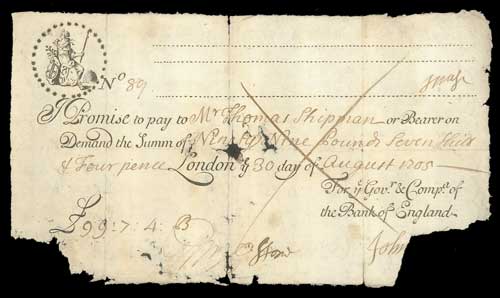 No 89
I Promise to pay to Mr Thomas Shipman or Bearer on
Demand the Summ of Ninety Nine Pounds Seven Shill
& Four pence London ye 30 day of August 1705
For ye Govr & Compa of
the Bank of England
£ 99:7:4
John